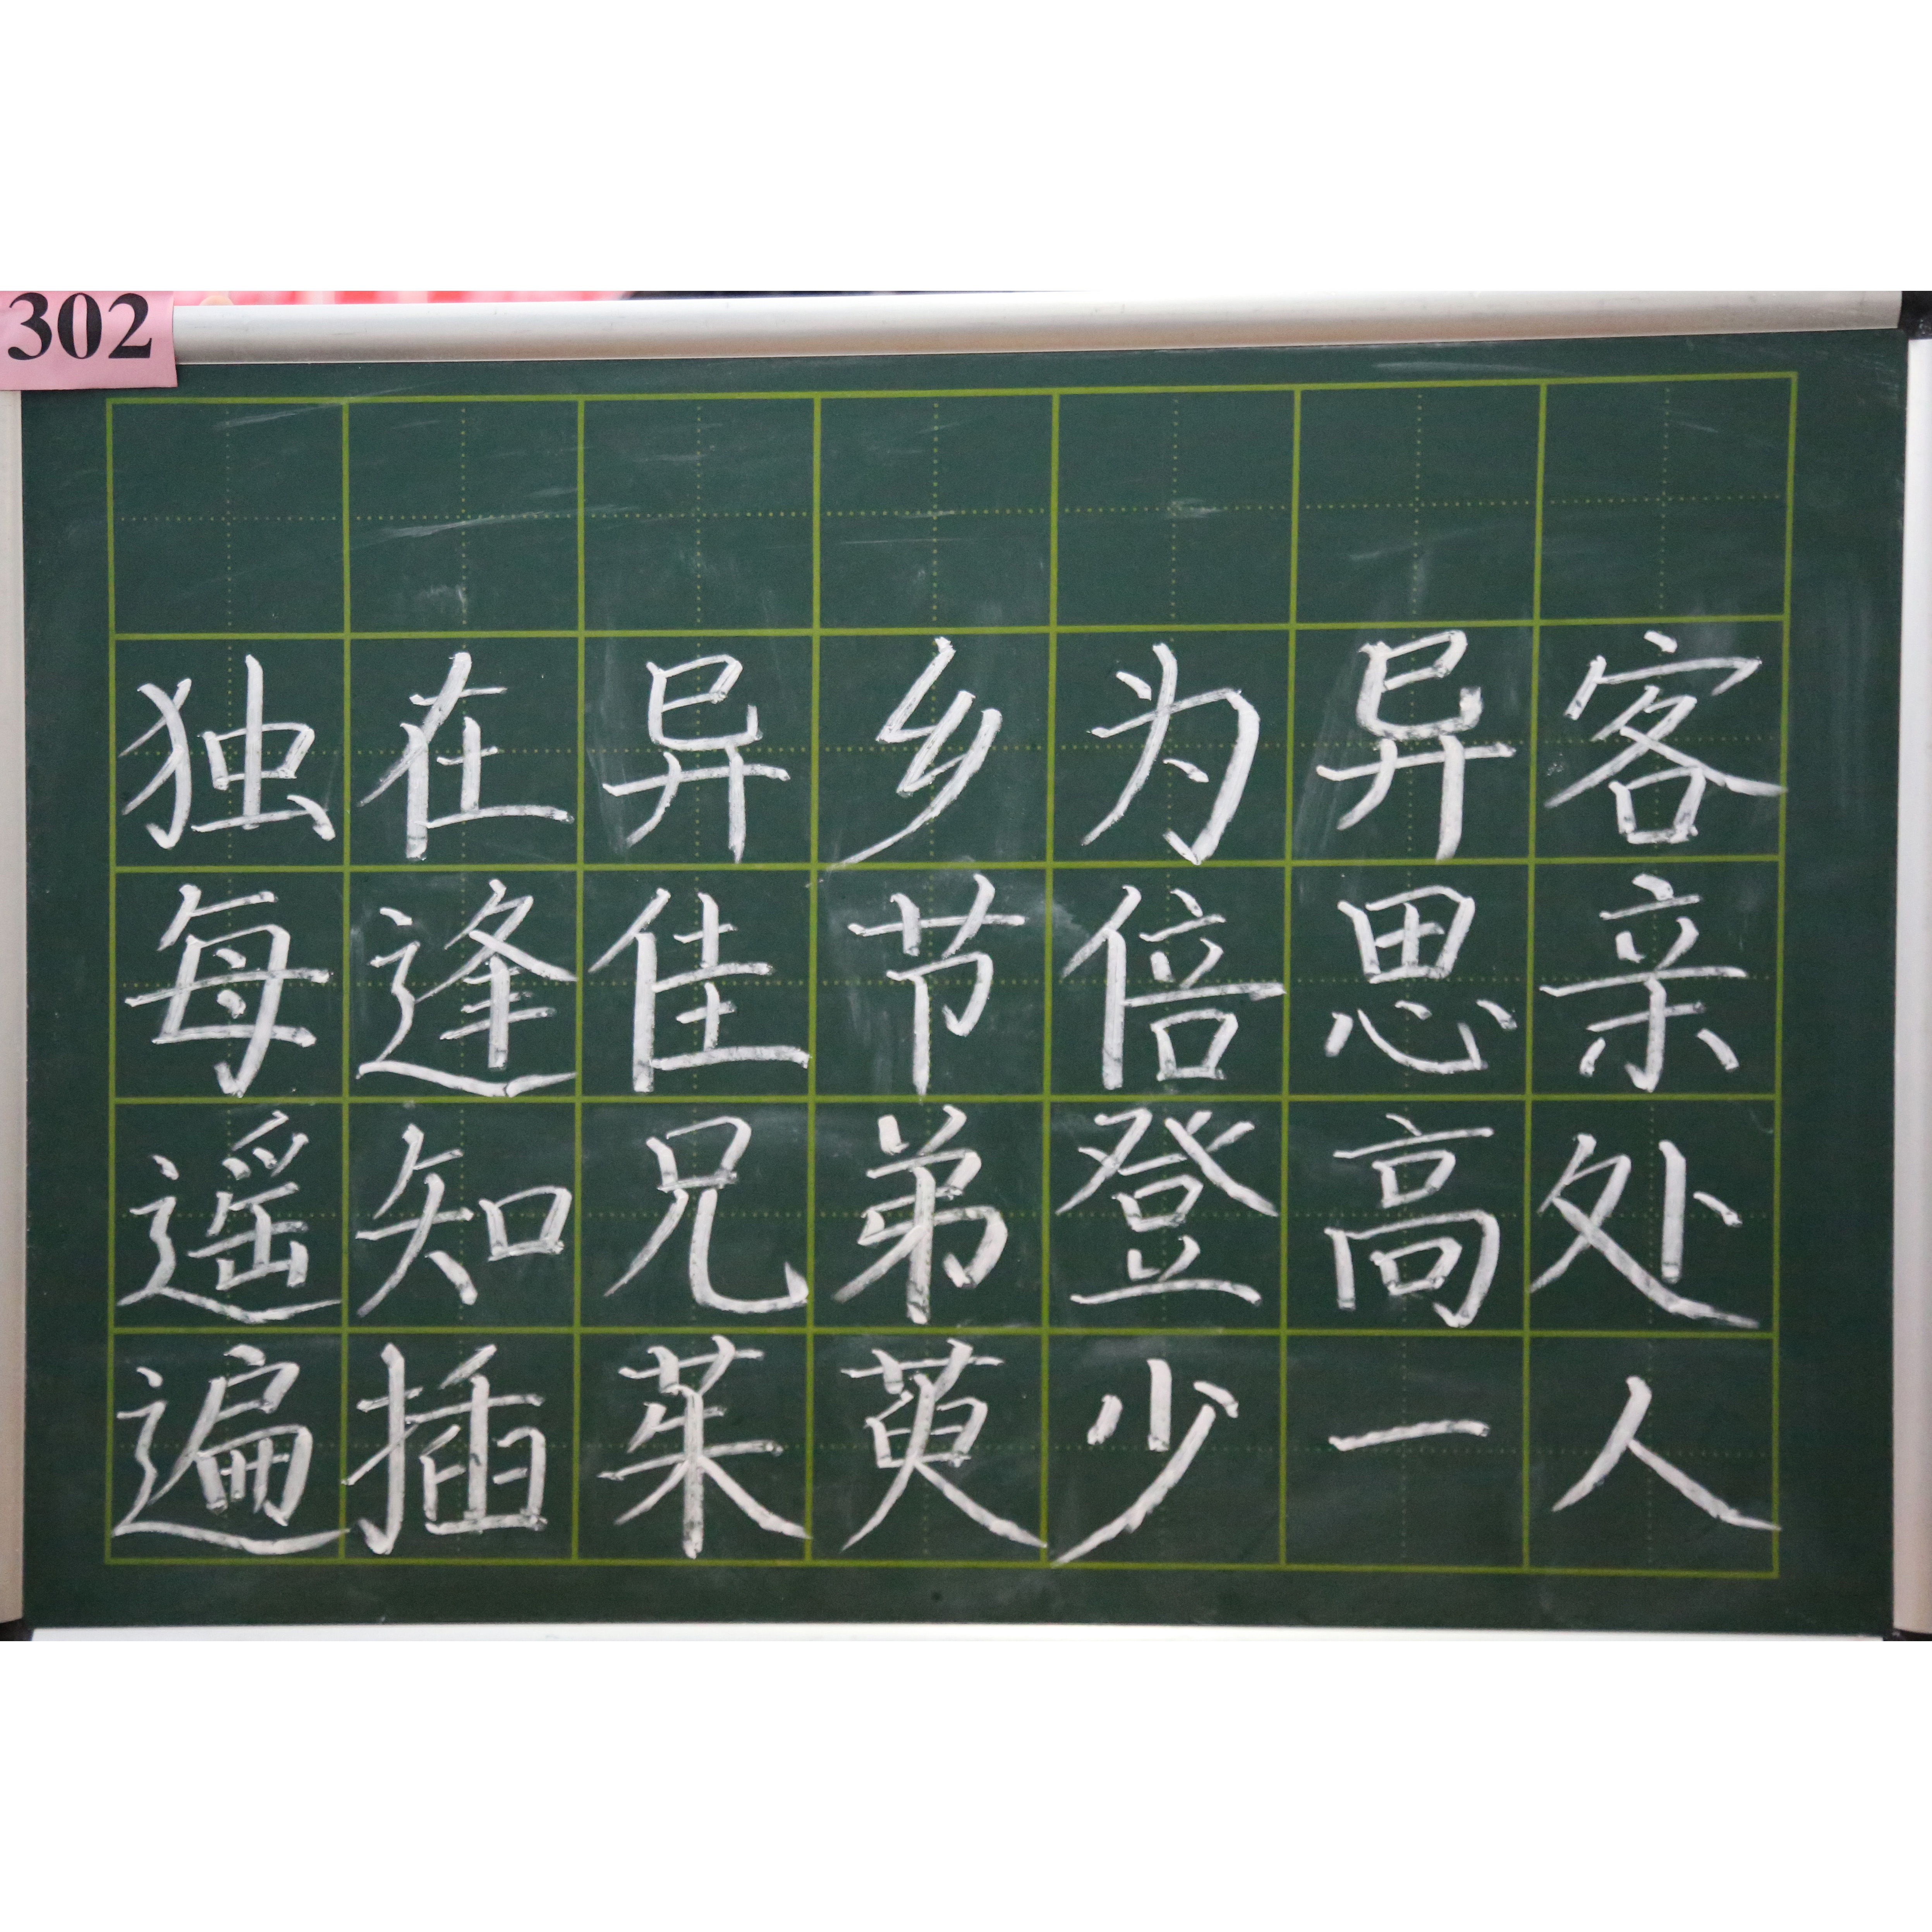 302
独在异乡为异客
每逢佳节倍思亲
遥知兄弟登高处
遍插茱萸少一人